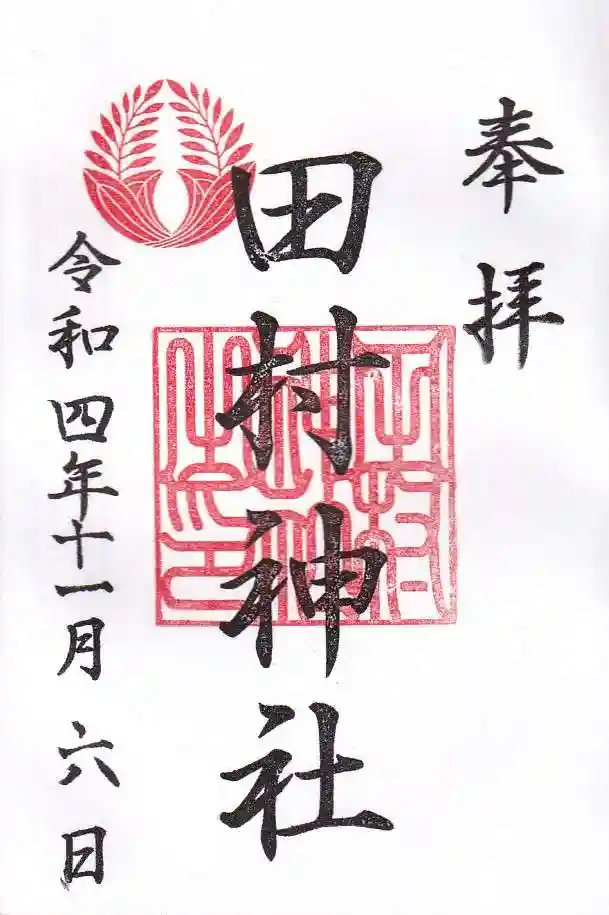 奉拝
田村神社
令和四年十一月六日